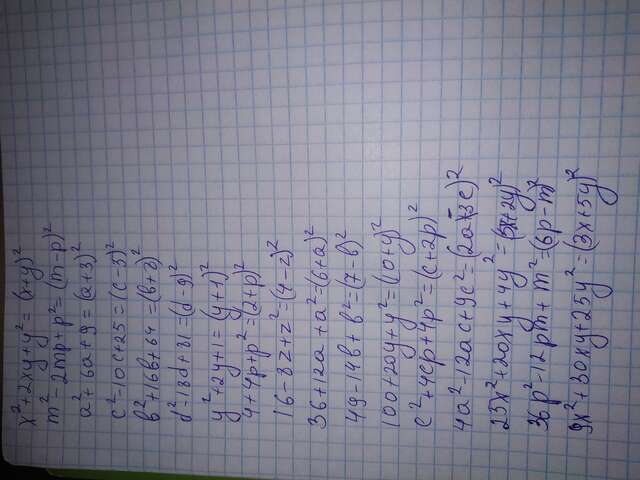 x²+2xy+y²=(x+y)²
m²-2mp+p²=(m-p)²
a²+6a+9=(a+3)²
c²-10c+25=(c-5)²
b²+16b+64=(b+8)²
d²-18d+81=(d-9)²
y²+2y+1=(y+1)²
4+4p+p²=(2+p)²
16-8z+z²=(4-z)²
36+12a+a²=(6+a)²
49-14b+b²=(7-b)²
100+20y+y²=(10+y)²
c²+4cp+4p²=(c+2p)²
4a²-12ac+9c²=(2a-3c)²
25x²+20xy+4y²=(5x+2y)²
36p²-12pm+m²=(6p-m)²
9x²+30xy+25y²=(3x+5y)²